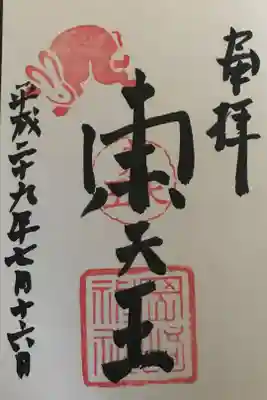 奉拝
東天王
岡﨑神社
平成二十九年七月十六日